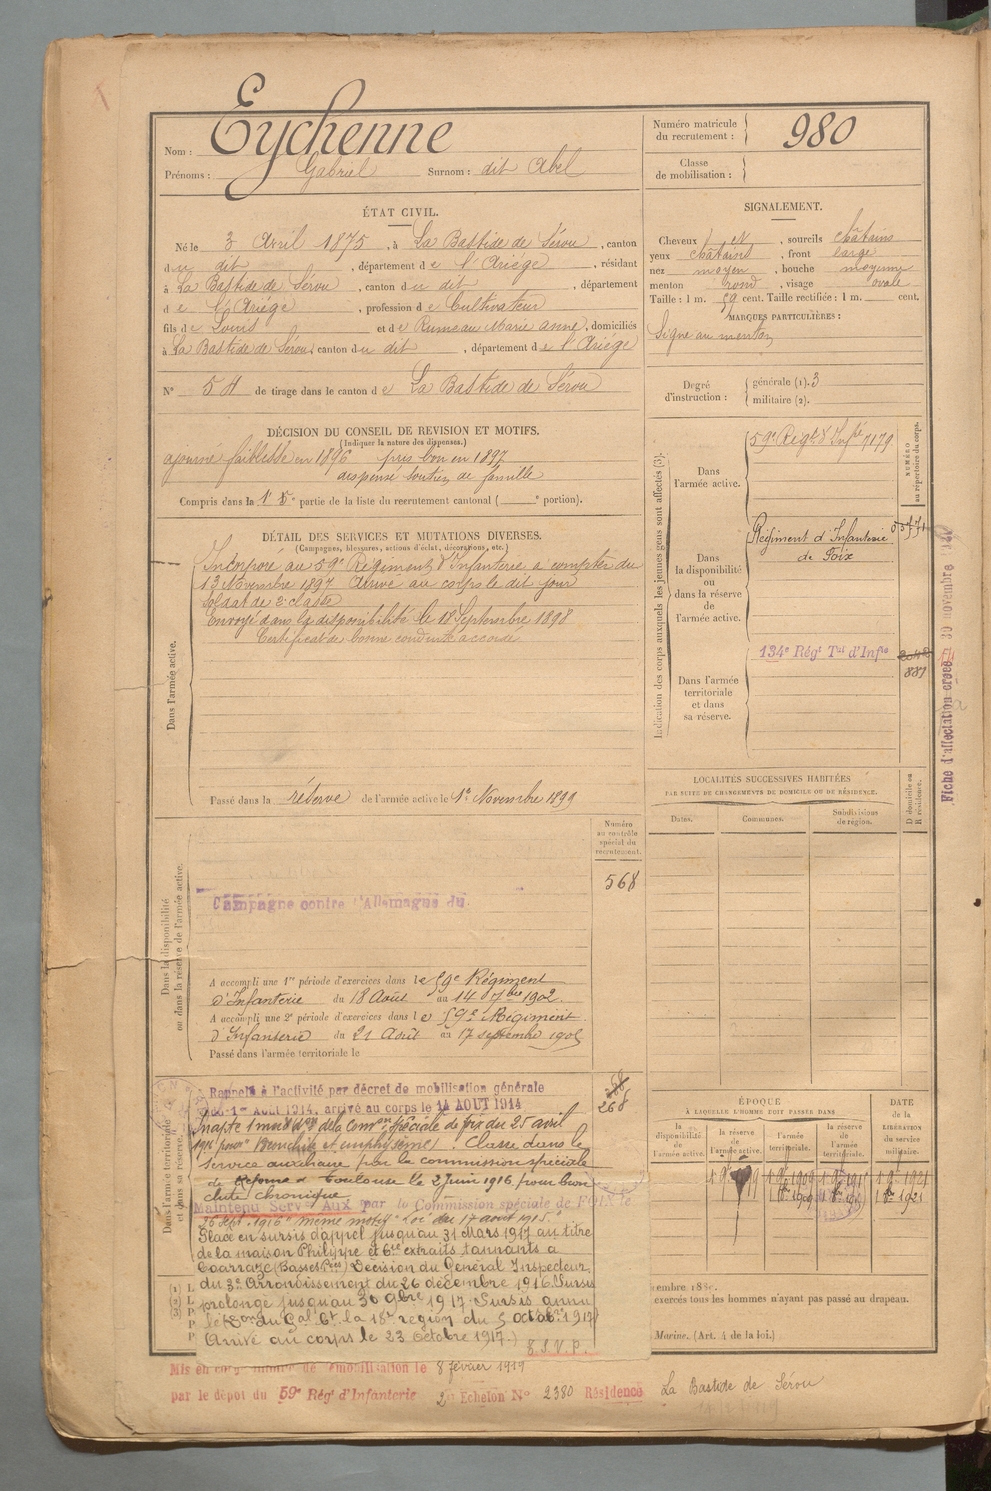 Nom : Eychenne
Prénoms : Gabriel Surnom : dit Abel
Numéro matricule du recrutement : 980
Classe de mobilisation :
ÉTAT CIVIL.
Né le 3 Avril 1875, à La Bastide de Sérou, canton
du dit, département de l'Ariège, résidant
à La Bastide de Sérou, canton du dit, département
de l'Ariège, profession de Cultivateur
fils de Louis et de Rumeau Marie Anne, domiciliés
à La Bastide de Sérou, canton du dit, département de l'Ariège
N° 54 de tirage dans le canton de La Bastide de Sérou
SIGNALEMENT.
Cheveux et, sourcils châtains
yeux châtains, front large
nez moyen, bouche moyenne
menton rond, visage ovale
Taille : 1 m. 59 cent. Taille rectifiée : 1 m. cent.
MARQUES PARTICULIÈRES :
Signe au menton
Degré d'instruction : générale (1). 3
militaire (2).
DÉCISION DU CONSEIL DE REVISION ET MOTIFS.
(Indiquer la nature des dispenses.)
ajourné faiblesse en 1896 pris bon en 1897
dispensé soutien de famille
Compris dans la partie de la liste du recrutement cantonal ( e portion).
DÉTAIL DES SERVICES ET MUTATIONS DIVERSES.
(Campagnes, blessures, actions d'éclat, décorations, etc.)
Dans l'armée active.
Incorporé au 59e Régiment d'Infanterie à compter du
13 Novembre 1897 Arrivé au corps le dit jour
soldat de 2e classe
Envoyé dans la disponibilité le 18 Septembre 1898
Certificat de bonne conduite accordé
Passé dans la réserve de l'armée active le 1er Novembre 1899
Indication des corps auxquels les jeunes gens sont affectés (3).
NUMÉRO au répertoire du corps.
Dans l'armée active.
59e Régt d'Infie 7179
Dans la disponibilité ou dans la réserve de l'armée active.
Régiment d'Infanterie
de Foix
Dans l'armée territoriale et dans sa réserve.
134e Régt Tal d'Infie
887
Fiche d'affectation créée 30 novembre
LOCALITÉS SUCCESSIVES HABITÉES
PAR SUITE DE CHANGEMENTS DE DOMICILE OU DE RÉSIDENCE.
Dates. Communes. Subdivisions de région. D domicile ou R résidence.
Dans la disponibilité ou dans la réserve de l'armée active.
Numéro au contrôle spécial du recrutement.
568
Campagne contre l'Allemagne du
A accompli une 1re période d'exercices dans le 59e Régiment
d'Infanterie du 18 Août au 14 7bre 1902.
A accompli une 2e période d'exercices dans le 59e Régiment
d'Infanterie du 21 Août au 17 septembre 1905
Passé dans l'armée territoriale le
Dans l'armée territoriale et dans sa réserve.
268
Rappelé à l'activité par décret de mobilisation générale
du 1er AOUT 1914, arrivé au corps le 14 AOUT 1914
Inapte 1 mois de la Comon spéciale de Foix du 25 avril
pour Bronchite et emphysème. Classé dans le
service auxiliaire par la commission spéciale
de Réforme de Toulouse le 2 Juin 1916 pour bron
chite chronique
Maintenu Serv. Aux par la Commission spéciale de FOIX le
26 sept. 1916 même motif Loi du 17 août 1915.
Placé en sursis d'appel jusqu'au 31 Mars 1917 au titre
de la maison Philippe et Cie extraits tannants à
Coarraze (Basses Pées) Décision du Général Inspecteur
du 3e Arrondissement du 26 décembre 1916. Sursis
prolongé jusqu'au 30 9bre 1917. Sursis annu
lé du Gal Ct la 18e région du 5 octobre 1917
Arrivé au corps le 23 octobre 1917.)
T.S.V.P.
ÉPOQUE
À LAQUELLE L'HOMME DOIT PASSER DANS
la disponibilité de l'armée active. la réserve de l'armée active. l'armée territoriale. la réserve de l'armée territoriale.
DATE de la LIBÉRATION du service militaire.
embre 188
exercés tous les hommes n'ayant pas passé au drapeau.
Marine. (Art. 4 de la loi.)
Mis en congé de démobilisation le 8 février 1919
par le dépôt du 59e Régt d'Infanterie 2e Echelon N° 2380 Résidence La Bastide de Sérou